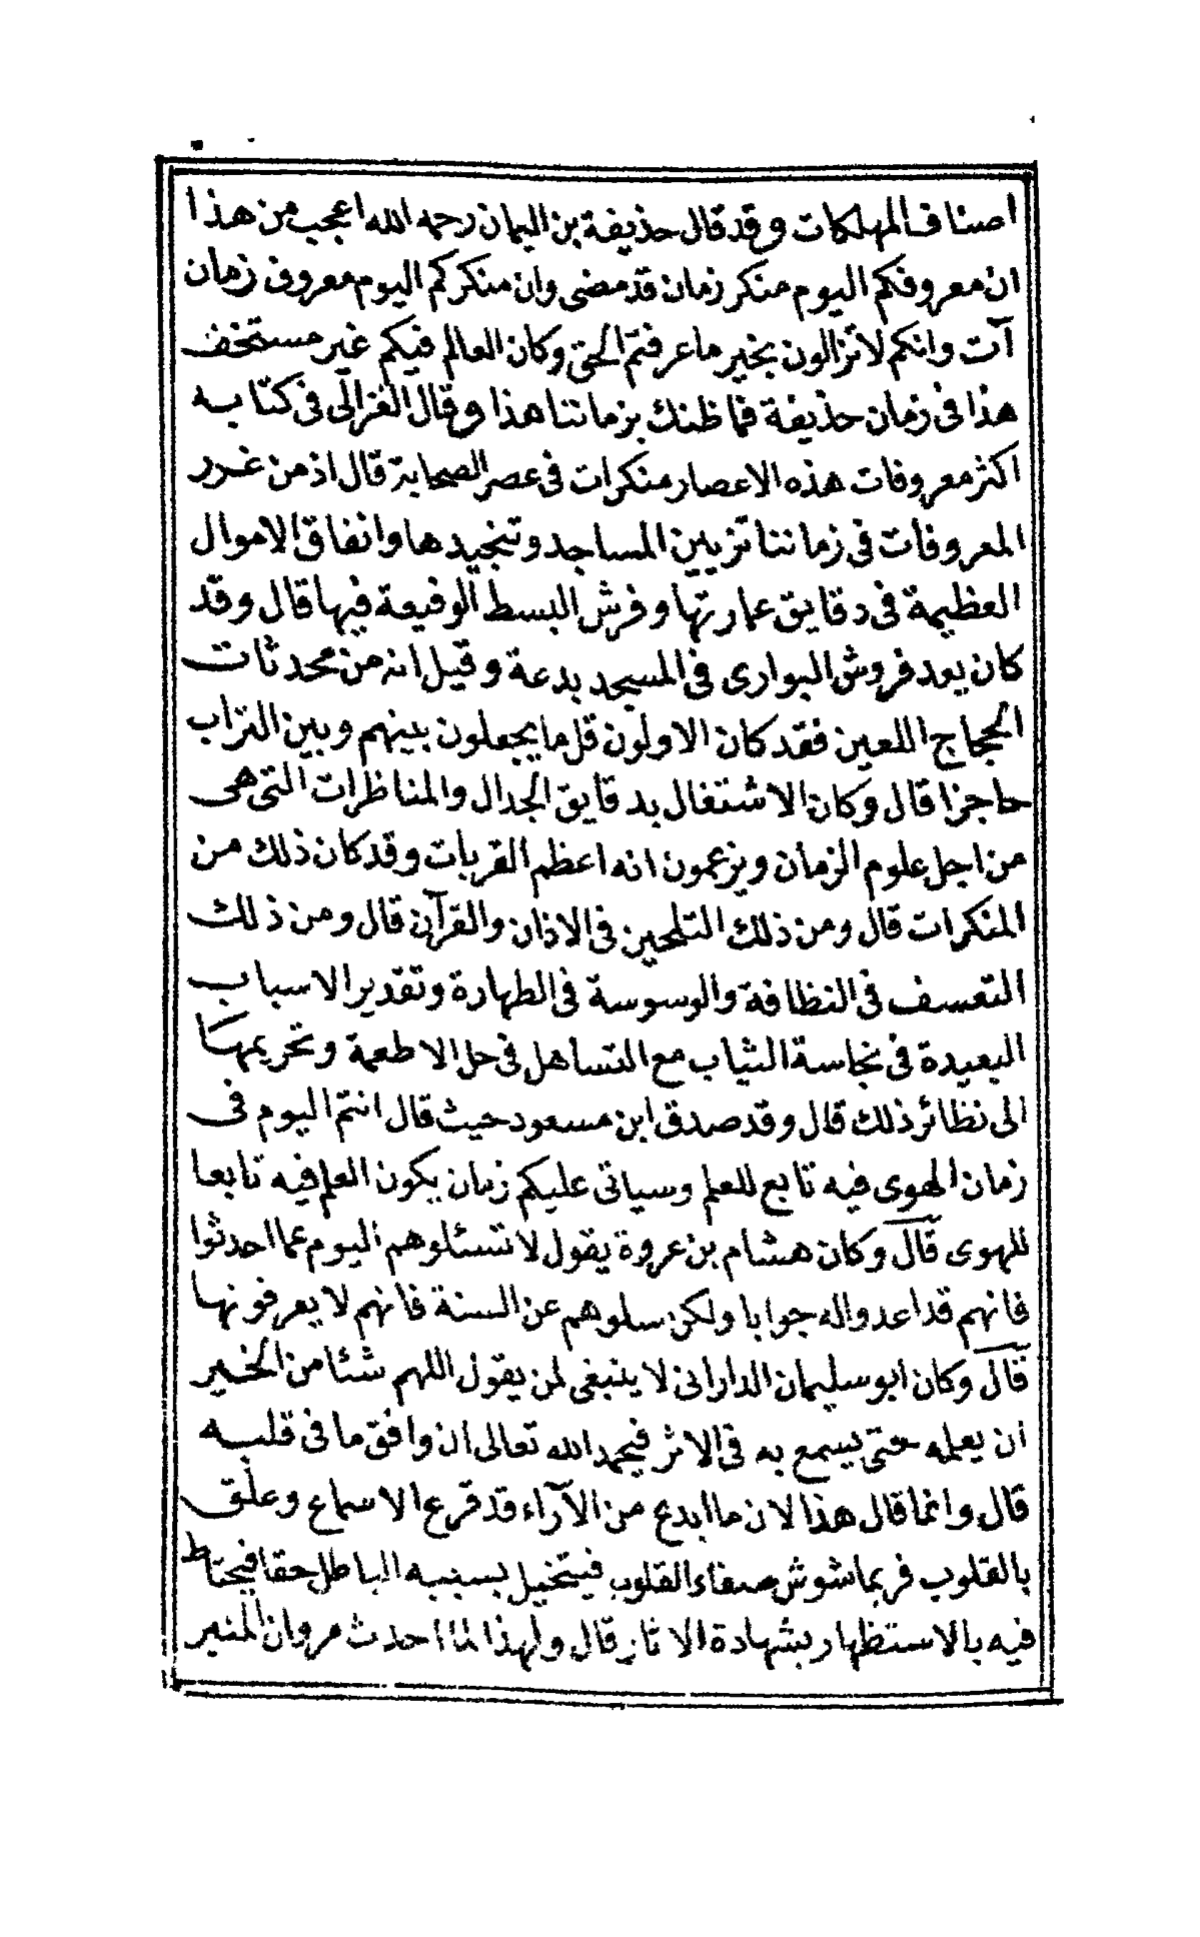 اصناف المهلكات وقد قال حذيفة بن اليمان رحمه الله اعجب من هذا
ان معروفكم اليوم منكر زمان قد مضى وان منكركم اليوم معروف زمان
آت وانكم لا تزالون بخير ما عرفتم الحق وكان العالم فيكم غير مستخف
هذا فى زمان حذيفة فما ظنك بزماننا هذا وقال الغزالى فى كتابه
اكثر معروفات هذه الاعصار منكرات فى عصر الصحابة قال اذ من غرر
المعروفات فى زماننا تزيين المساجد وتنجيدها وانفاق الاموال
العظيمة فى دقايق عمارتها وفرش البسط الوفيعة فيها قال وقد
كان يعد فروش البوارى فى المسجد بدعة وقيل انه من محدثات
الحجاج اللعين فقد كان الاولون قل ما يجعلون بينهم وبين التراب
حاجزا قال وكان الاشتغال بدقايق الجدال والمناظرات التى هى
من اجل علوم الزمان ويزعمون انه اعظم القربات وقد كان ذلك من
المنكرات قال ومن ذلك التلحين فى الاذان والقرآن قال ومن ذلك
التعسف فى النظافة والوسوسة فى الطهارة وتقدير الاسباب
البعيدة فى نجاسة الثياب مع التساهل فى حل الاطعمة وتحريمها
الى نظائر ذلك قال وقد صدق ابن مسعود حيث قال انتم اليوم فى
زمان الهوى فيه تابع للعلم وسياتى عليكم زمان يكون العلم فيه تابعا
للهوى قال وكان هشام بن عروة يقول لا تسئلوهم اليوم عما احدثوا
فانهم قد اعدوا له جوابا ولكن سلوهم عن السنة فانهم لا يعرفونها
قال وكان ابو سليمان الدارانى لا ينبغى لمن يقول اللهم شئا من الخير
ان يعمله حتى يسمع به فى الاثر فيحمد الله تعالى ان وافق ما فى قلبه
قال وانما قال هذا لان ما ابدع من الآراء قد قرع الاسماع وعلق
بالقلوب فربما شوش صفاء القلوب فيتخيل بسببه الباطل حقا فيحتاط
فيه بالاستظهار بشهادة الاثار قال ولهذا لما احدث مروان المنبر